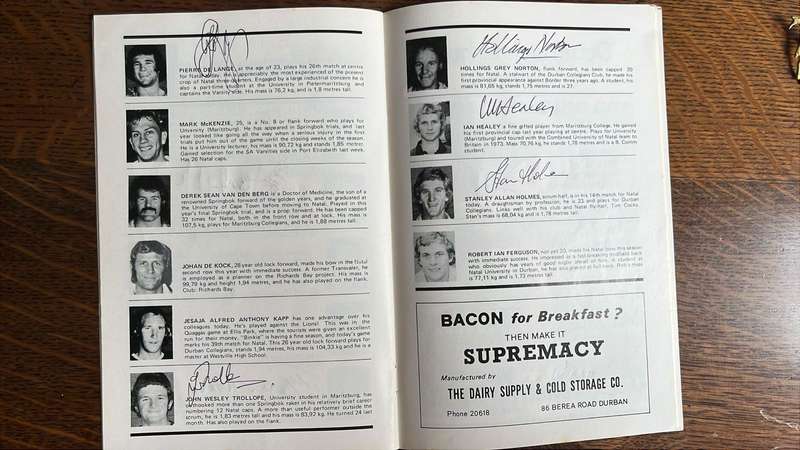 PIERRE DE LANGE, at the age of 23, plays his 26th match at centre
for Natal today. He is appreciably the most experienced of the present
crop of Natal three-quarters. Engaged by a large industrial concern he is
also a part-time student at the University in Pietermaritzburg and
captains the Varsity side. His mass is 76,2 kg, and is 1,8 metres tall.
MARK McKENZIE, 25, is a No. 8 or flank forward who plays for
University (Maritzburg). He has appeared in Springbok trials, and last
year looked like going all the way when a serious injury in the first
trials put him out of the game until the closing weeks of the season.
He is a University lecturer, his mass is 90,72 kg and stands 1,85 metres.
Gained selection for the SA Varsities side in Port Elizabeth last week.
Has 26 Natal caps.
DEREK SEAN VAN DEN BERG is a Doctor of Medicine, the son of a
renowned Springbok forward of the golden years, and he graduated at
the University of Cape Town before moving to Natal. Played in this
year's final Springbok trial, and is a prop forward. He has been capped
32 times for Natal, both in the front row and at lock. His mass is
107,5 kg, plays for Maritzburg Collegians, and he is 1,88 metres tall.
JOHAN DE KOCK, 28 year old lock forward, made his bow in the Natal
second row this year with immediate success. A former Transvaler, he
is employed as a planner on the Richards Bay project. His mass is
99,79 kg and height 1,94 metres, and he has also played on the flank.
Club: Richards Bay.
JESAJA ALFRED ANTHONY KAPP has one advantage over his
colleagues today. He's played against the Lions! This was in the
Quaggas game at Ellis Park, where the tourists were given an excellent
run for their money. "Binkie" is having a fine season, and today's game
marks his 39th match for Natal. This 26 year old lock forward plays for
Durban Collegians, stands 1,94 metres, his mass is 104,33 kg and he is a
master at Westville High School.
JOHN WESLEY TROLLOPE, University student in Maritzburg, has
outhooked more than one Springbok raker in his relatively brief career
numbering 12 Natal caps. A more than useful performer outside the
scrum, he is 1,83 metres tall and his mass is 83,92 kg. He turned 24 last
month. Has also played on the flank.
Hollings Norton
HOLLINGS GREY NORTON, flank forward, has been capped 20
times for Natal. A stalwart of the Durban Collegians Club, he made his
first provincial appearance against Border three years ago. A student, his
mass is 81,65 kg, stands 1,75 metres and is 27.
Healey
IAN HEALEY a fine gifted player from Maritzburg College. He gained
his first provincial cap last year playing at centre. Plays for University
(Maritzburg) and toured with the Combined University of Natal team to
Britain in 1973. Mass 70,76 kg, stands 1,78 metres and is a B. Comm
student.
Stan Holmes
STANLEY ALLAN HOLMES, scrum-half, is in his 14th match for Natal
today. A draughtsman by profession, he is 23 and plays for Durban
Collegians. Links well with his club and Natal fly-half, Tim Cocks.
Stan's mass is 68,04 kg and is 1,78 metres tall.
ROBERT IAN FERGUSON, not yet 20, made his Natal bow this season
with immediate success. He impressed as a fast-breaking midfield back
who, obviously has years of good rugby ahead of him. A student at
Natal University in Durban, he has also played at full back. Rob's mass
is 77,11 kg and is 1,73 metres tall.
BACON for Breakfast ?
THEN MAKE IT
SUPREMACY
Manufactured by
THE DAIRY SUPPLY & COLD STORAGE CO.
Phone 20618 86 BEREA ROAD DURBAN